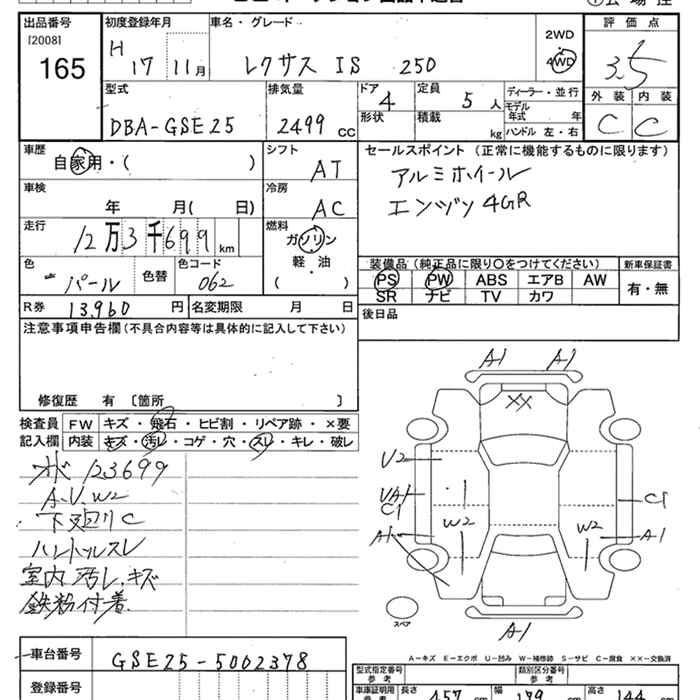 出品番号 初度登録年月 車名・グレード 2WD 評価点
[2008] H 4WD 3.5
165 17 11月 レクサス IS 250 外装 内装
C C
型式 排気量 ドア 4 定員 5人 ディーラー・並行
DBA-GSE25 2499cc 形状 積載 kg モデル年式 年
ハンドル 左・右
車歴 シフト セールスポイント (正常に機能するものに限ります)
自家用・( ) AT アルミホイール
車検 冷房 エンヂン 4GR
年 月( 日) AC
走行 燃料
12万3千699km ガソリン
軽・油
( )
色 色替 色コード 装備品(純正品に限り〇をつけてください) 新車保証書
パール 062 PS PW ABS エアB AW 有・無
R券 13,960円 名変期限 月 日 SR ナビ TV カワ
注意事項申告欄(不具合内容等は具体的に記入して下さい) 後日品
修復歴 有 〔箇所 〕
検査員 FW キズ・飛石・ヒビ割・リペア跡・×要
記入欄 内装 キズ・汚レ・コゲ・穴・スレ・キレ・破レ
123699
A.U.W2
下廻りC
ハンドルスレ
室内 汚レ.キズ
鉄粉付着
A1 A1
XX
U2
UA1
C1
C1
W2 W2
A1 A1
A1
スペア
車台番号 GSE25-5002378
登録番号
A-キズ E-エクボ U-凹み W-補修跡 S-サビ C-腐食 ××-交換済
型式指定番号 参考 類別区分番号 参考
車庫証明用 長さ 457 cm 幅 179 cm 高さ 144 cm